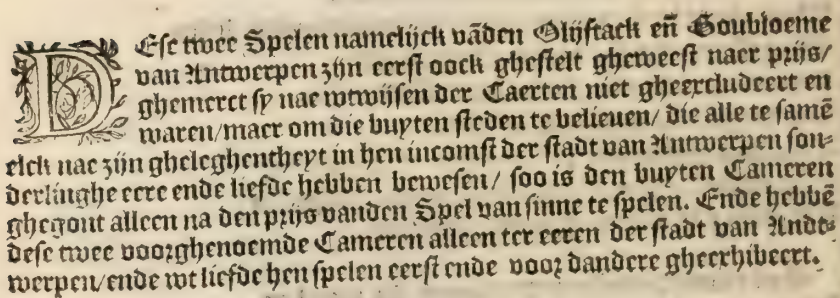 DEse twee Spelen namelijck vādēn Olijftack eñ Goubloeme
van Antwerpen zijn eerst oock ghestelt gheweest naer prijs/
ghemerct sy nae wtwijsen der Caerten niet gheexcludeert en
waren/maer om die buyten steden te belieuen/ die alle te samē
elck nae zijn gheleghentheyt in hen incomst der stadt van Antwerpen son-
derlinghe eere ende liefde hebben bewesen/ soo is den buyten Cameren
ghegont alleen na den prijs vanden Spel van sinne te spelen. Ende hebbē
dese twee voorghenoemde Cameren alleen ter eeren der stadt van Andt-
werpen/ende wt liefde hen spelen eerst ende voor dandere gheexhibeert.